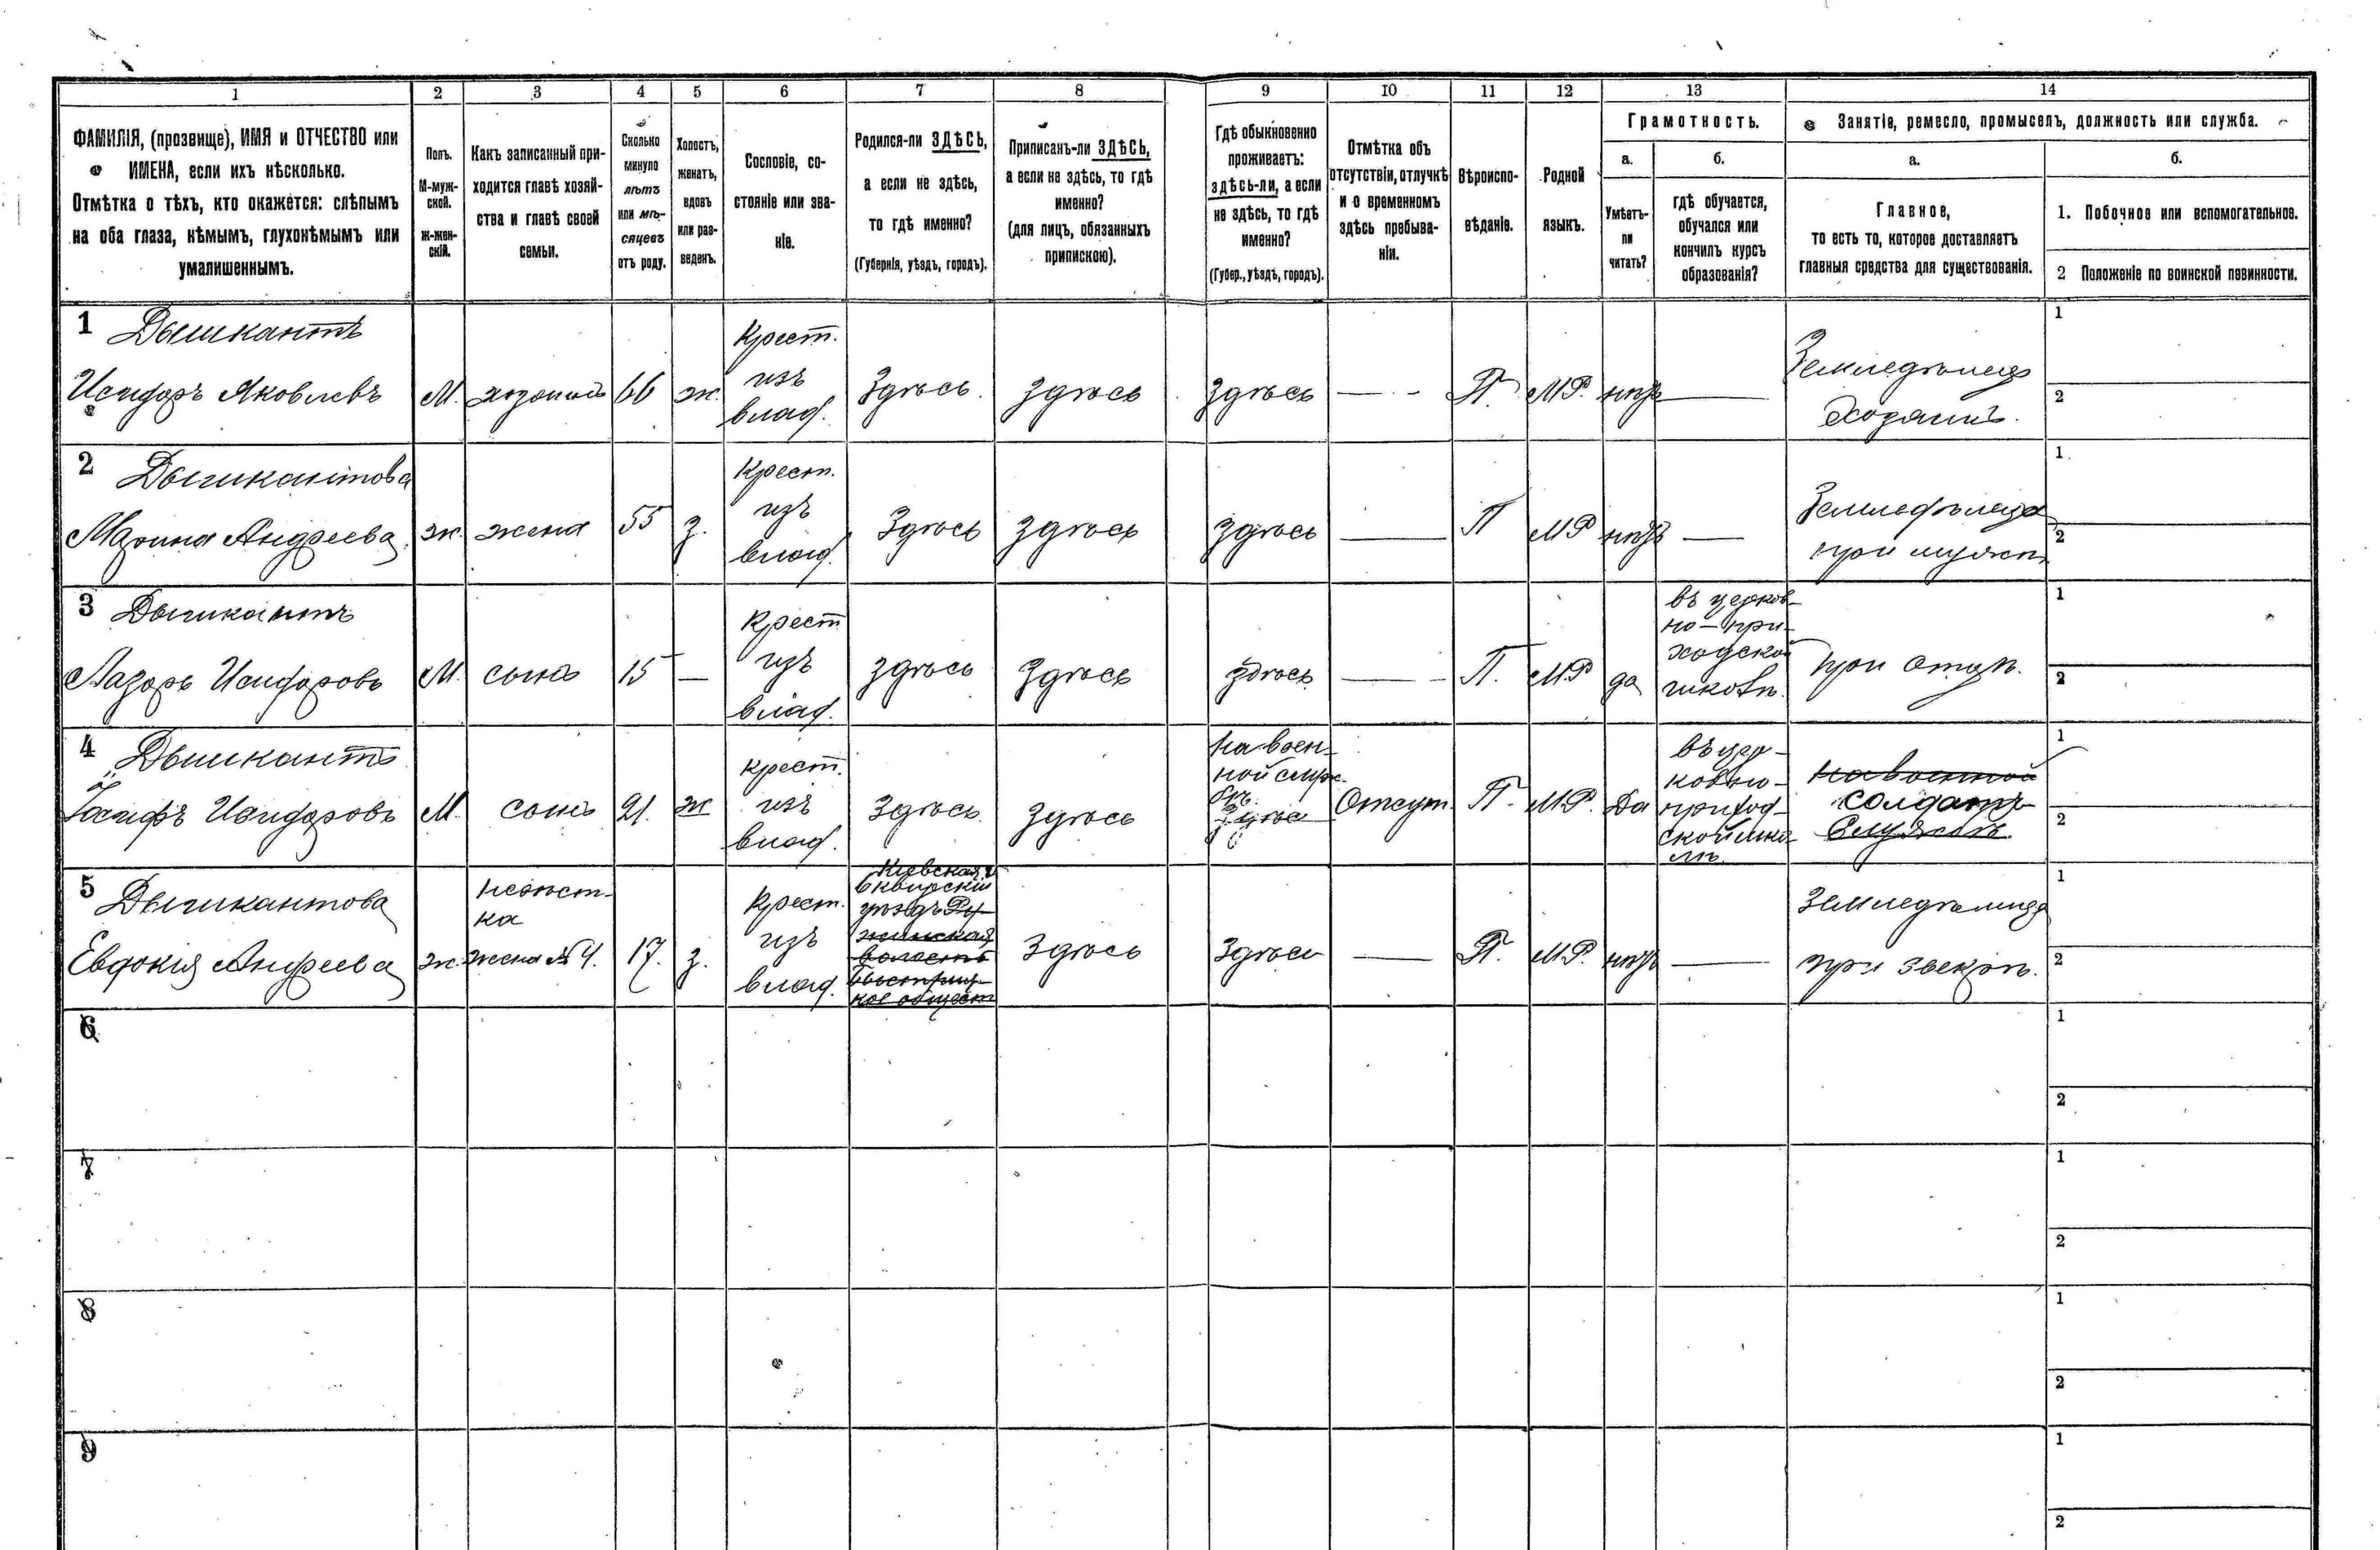 1 2 3 4 5 6 7 8 9 10 11 12 13 14
ФАМИЛІЯ, (прозвище), ИМЯ и ОТЧЕСТВО или
ИМЕНА, если ихъ нѣсколько.
Отмѣтка о тѣхъ, кто окажется: слѣпымъ
на оба глаза, нѣмымъ, глухонѣмымъ или
умалишеннымъ.
Полъ.
М-муж-
ской.
Ж-жен-
скій.
Какъ записанный при-
ходится главѣ хозяй-
ства и главѣ своей
семьи.
Сколько
минуло
лѣтъ
или мѣ-
сяцевъ
отъ роду.
Холостъ,
женатъ,
вдовъ
или раз-
веденъ.
Сословіе, со-
стояніе или зва-
ніе.
Родился-ли ЗДѢСЬ,
а если не здѣсь,
то гдѣ именно?
(Губернія, уѣздъ, городъ).
Приписанъ-ли ЗДѢСЬ,
а если не здѣсь, то гдѣ
именно?
(для лицъ, обязанныхъ
припискою).
Гдѣ обыкновенно
проживаетъ:
здѣсь-ли, а если
не здѣсь, то гдѣ
именно?
(Губер., уѣздъ, городъ).
Отмѣтка объ
отсутствіи, отлучкѣ
и о временномъ
здѣсь пребыва-
ніи.
Вѣроиспо-
вѣданіе.
Родной
языкъ.
Грамотность.
а.
Умѣетъ-
ли
читать?
б.
гдѣ обучается,
обучался или
кончилъ курсъ
образованія?
Занятіе, ремесло, промыселъ, должность или служба.
а.
Главное,
то есть то, которое доставляетъ
главныя средства для существованія.
б.
1. Побочное или вспомогательное.
2 Положеніе по воинской повинности.
1 Дышкантъ
Исидоръ Яковлевъ
М.
хозяинъ
66
ж.
Крест.
изъ
влад.
Здѣсь.
здѣсь
здѣсь
— -
П.
МР.
нѣтъ
—
Земледѣлецъ
Хозяинъ.
1
2
2 Дышкантова
Марина Андреева
ж.
жена
55
з.
Крест.
изъ
влад.
Здѣсь
здѣсь
здѣсь
—
П
МР
нѣтъ
—
Земледѣлица
при мужѣ
1
2
3 Дышкантъ
Лазарь Исидоровъ
М.
сынъ
15
—
Крест
изъ
влад.
здѣсь
здѣсь
здѣсь
— -
П.
МР
да
въ церков-
но-при-
ходской
школѣ.
при отцѣ.
1
2
4 Дышкантъ
Іосифъ Исидоровъ
М.
сынъ
21.
ж
крест.
изъ
влад.
Здѣсь.
здѣсь
на воен-
ной служ-
бѣ.
Отсут.
П.
МР.
Да
въ цер-
ковно-
приход-
ской шко-
лѣ.
на военной
солдатъ
службѣ
1
2
5 Дышкантова
Евдокія Андреева
ж.
невѣст-
ка
жена №4.
17.
з.
Крест.
изъ
влад.
Кіевская г.
Сквирскій
уѣздъ Ру-
жинская
волость
Быстриц-
кое общест
Здѣсь
Здѣсь
—
П.
МР.
нѣтъ
—
Земледѣлица
при свекрѣ.
1
2
6
1
2
7
1
2
8
1
2
9
1
2